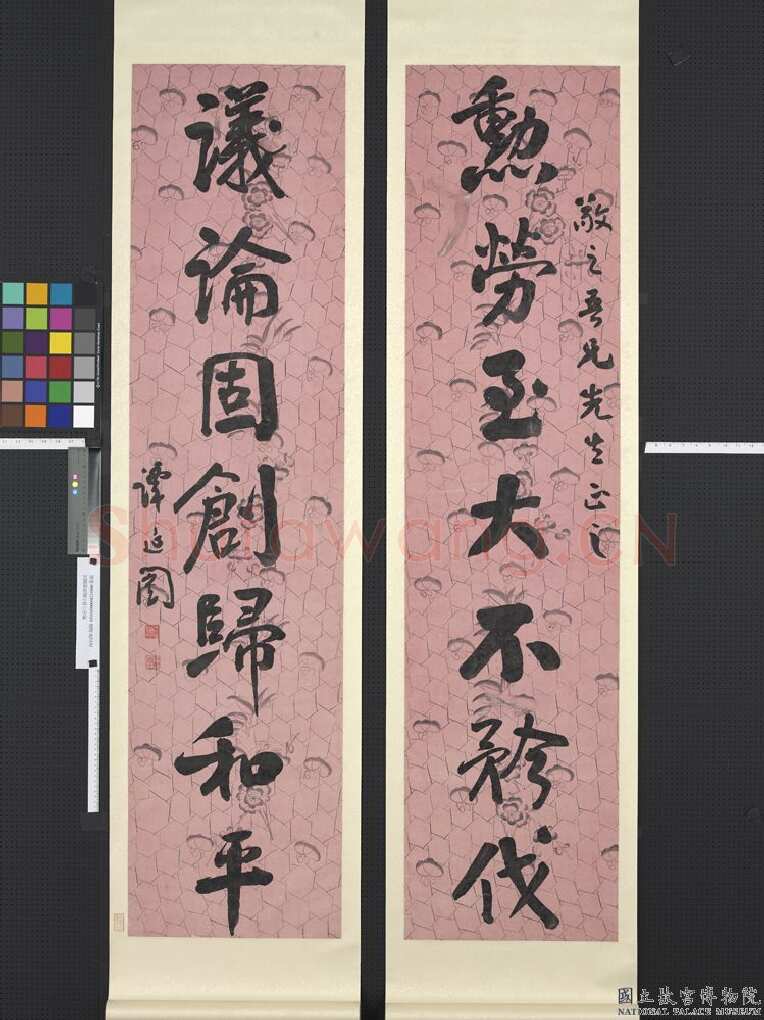 勳勞至大不矜伐
敬之吾兄先生正之
議論固創歸和平
譚延闓
Shufawang.CN
國立故宮博物院
NATIONAL PALACE MUSEUM